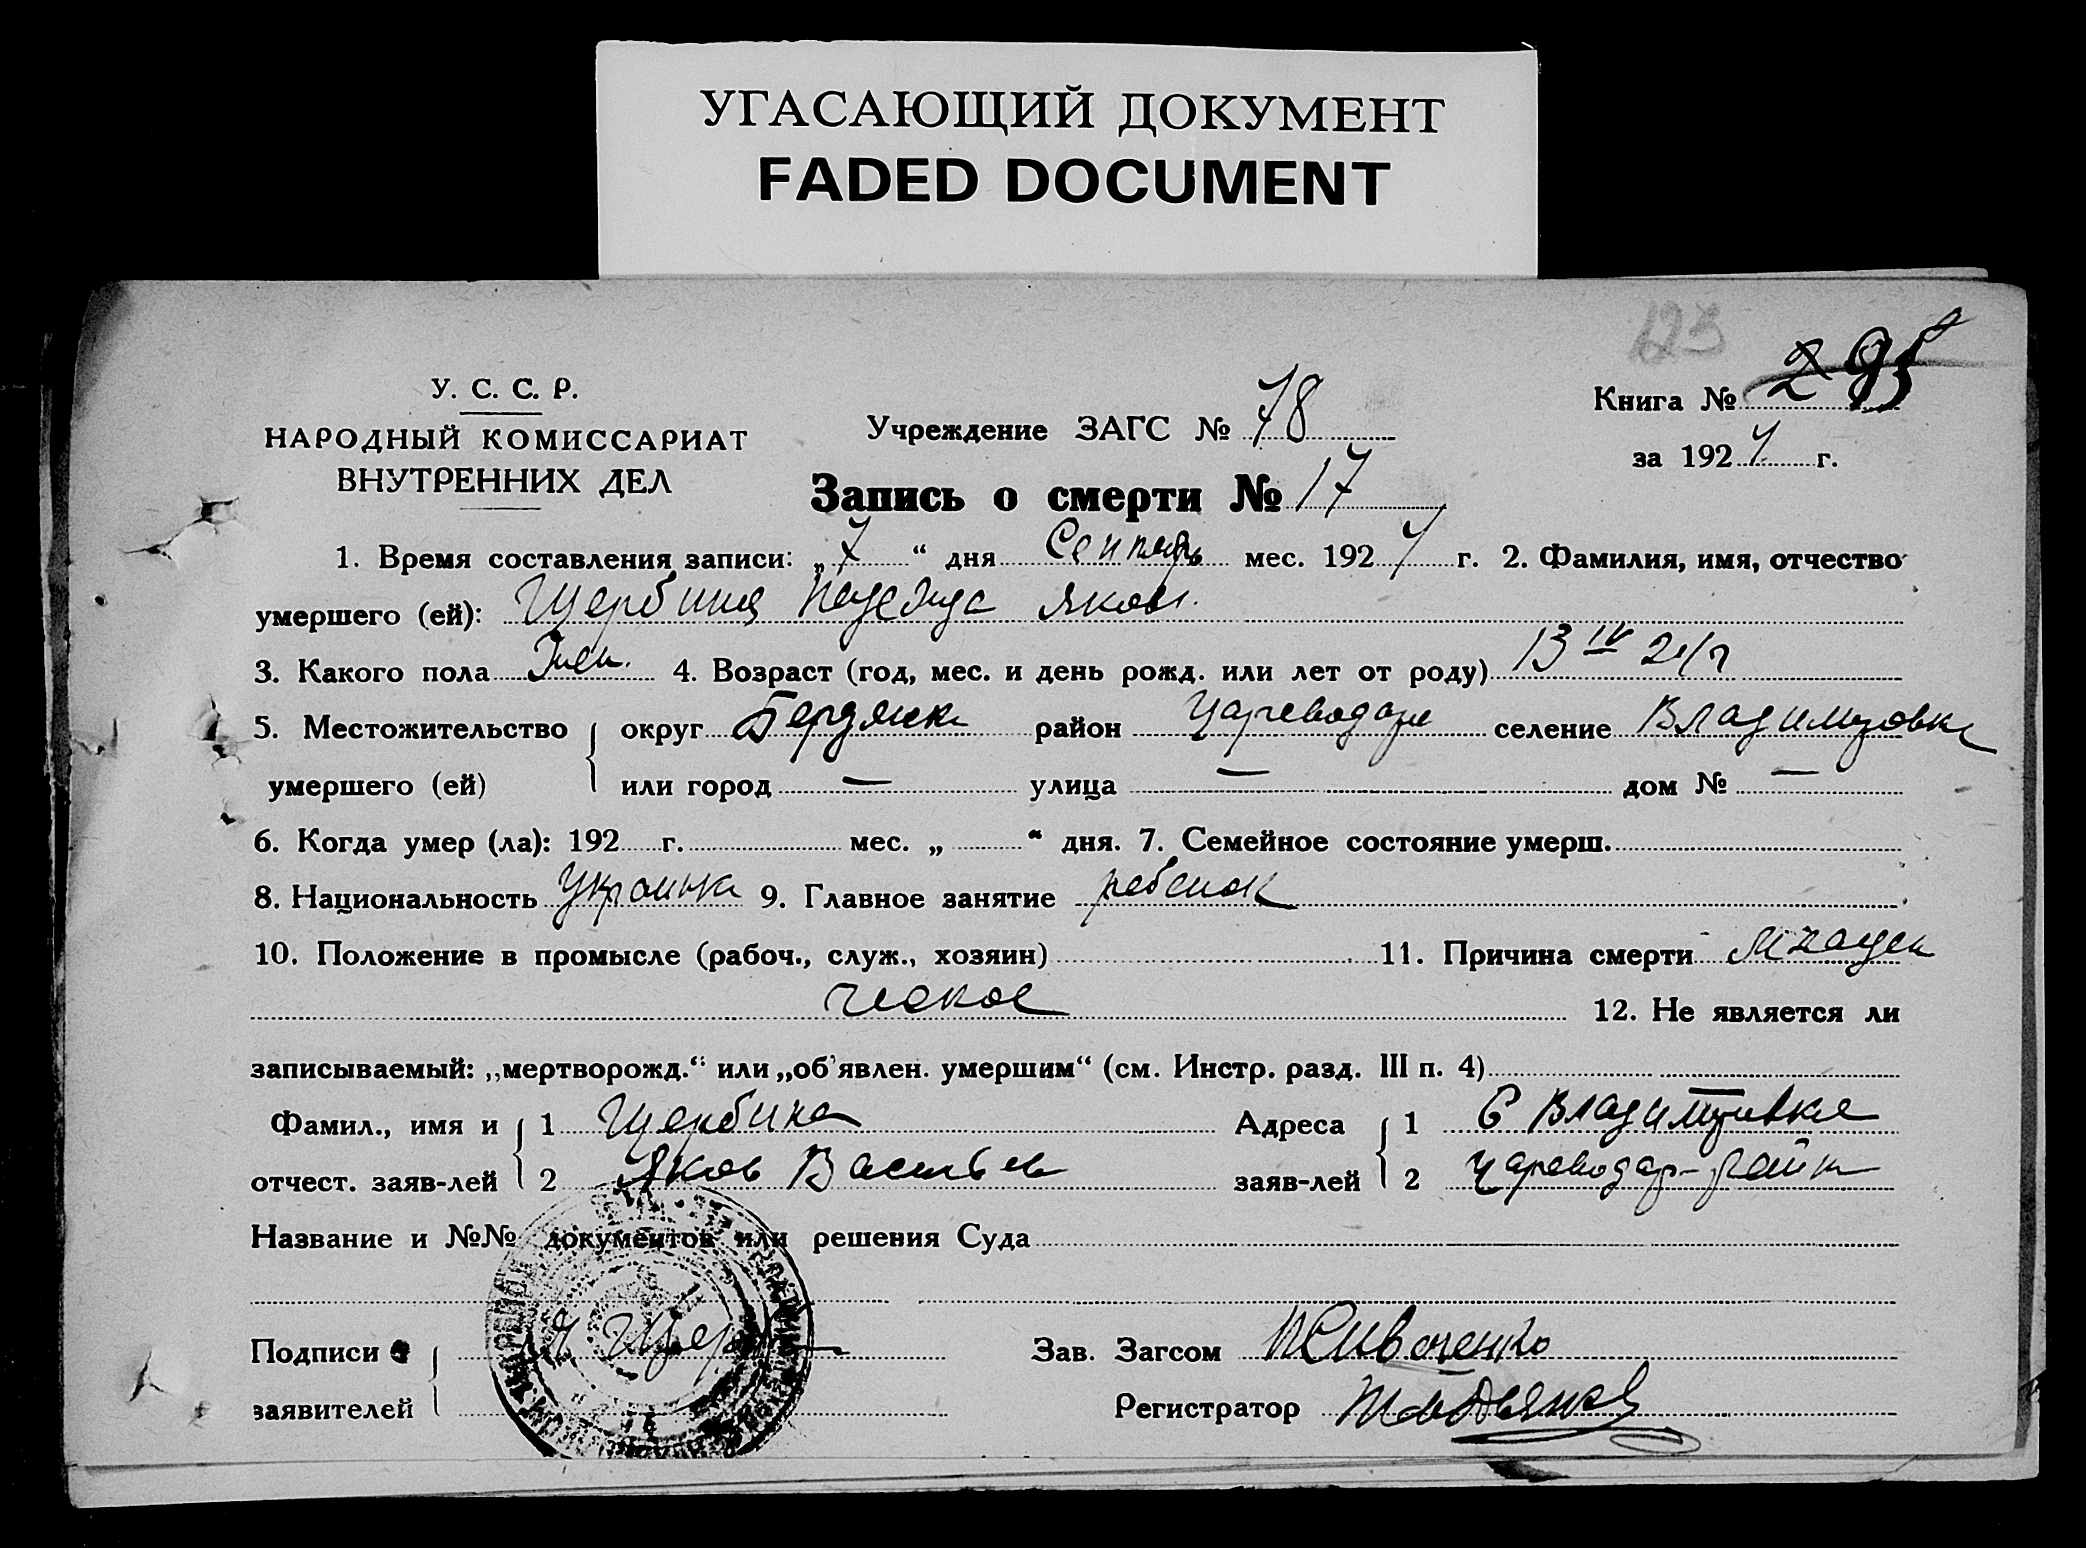 УГАСАЮЩИЙ ДОКУМЕНТ
FADED DOCUMENT
123
У. С. С. Р.
НАРОДНЫЙ КОМИССАРИАТ
ВНУТРЕННИХ ДЕЛ
Учреждение ЗАГС № 78
Книга № 295
за 192 г.
Запись о смерти № 17
1. Время составления записи: „7“ дня Сентяб мес. 192 г. 2. Фамилия, имя, отчество
умершего (ей): Щербина Надежда Яковл.
3. Какого пола Жен. 4. Возраст (год, мес. и день рожд. или лет от роду) 13 IV
5. Местожительство округ Бердянск район Цареводар селение Владимировка
умершего (ей) или город — улица — дом № —
6. Когда умер (ла): 192 г. мес. „ “ дня. 7. Семейное состояние умерш.
8. Национальность Украинка 9. Главное занятие ребенок
10. Положение в промысле (рабоч., служ., хозяин) 11. Причина смерти младен
ческое 12. Не является ли
записываемый: „мертворожд.“ или „об'явлен. умершим“ (см. Инстр. разд. III п. 4)
Фамил., имя и 1 Щербина Адреса 1 С Владимировка
отчест. заяв-лей 2 Яков Васильев заяв-лей 2 Цареводар-район
Название и №№ документов или решения Суда
Подписи Щерб Зав. Загсом
заявителей Регистратор